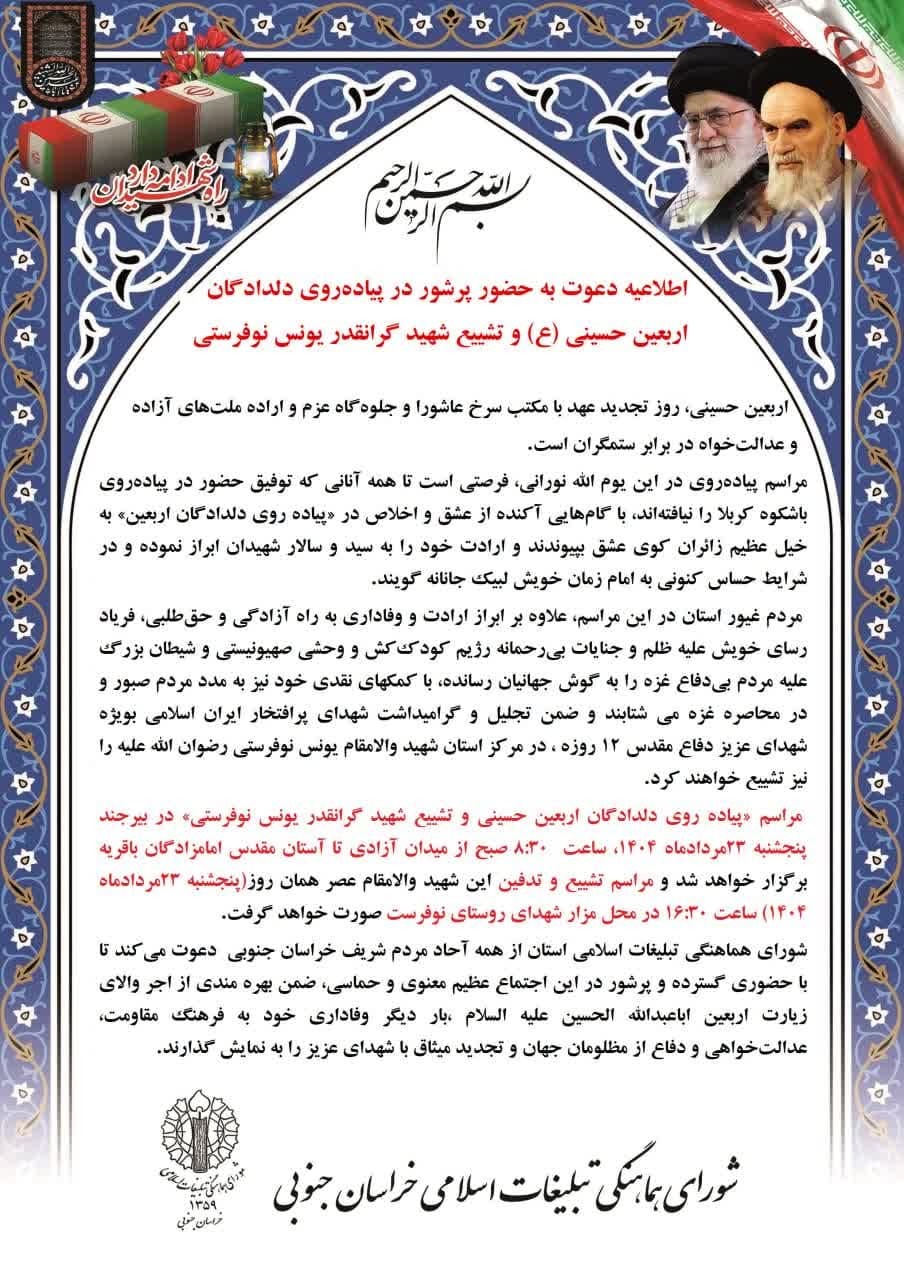 راه شهیدان ادامه دارد
بسم الله الرحمن الرحیم
اطلاعیه دعوت به حضور پرشور در پیاده‌روی دلدادگان
اربعین حسینی (ع) و تشییع شهید گرانقدر یونس نوفرستی
اربعین حسینی، روز تجدید عهد با مکتب سرخ عاشورا و جلوه‌گاه عزم و اراده ملت‌های آزاده
و عدالت‌خواه در برابر ستمگران است.
مراسم پیاده‌روی در این یوم الله نورانی، فرصتی است تا همه آنانی که توفیق حضور در پیاده‌روی
باشکوه کربلا را نیافته‌اند، با گام‌هایی آکنده از عشق و اخلاص در «پیاده روی دلدادگان اربعین» به
خیل عظیم زائران کوی عشق بپیوندند و ارادت خود را به سید و سالار شهیدان ابراز نموده و در
شرایط حساس کنونی به امام زمان خویش لبیک جانانه گویند.
مردم غیور استان در این مراسم، علاوه بر ابراز ارادت و وفاداری به راه آزادگی و حق‌طلبی، فریاد
رسای خویش علیه ظلم و جنایات بی‌رحمانه رژیم کودک‌کش و وحشی صهیونیستی و شیطان بزرگ
علیه مردم بی‌دفاع غزه را به گوش جهانیان رسانده، با کمکهای نقدی خود نیز به مدد مردم صبور و
در محاصره غزه می شتابند و ضمن تجلیل و گرامیداشت شهدای پرافتخار ایران اسلامی بویژه
شهدای عزیز دفاع مقدس ۱۲ روزه ، در مرکز استان شهید والامقام یونس نوفرستی رضوان الله علیه را
نیز تشییع خواهند کرد.
مراسم «پیاده روی دلدادگان اربعین حسینی و تشییع شهید گرانقدر یونس نوفرستی» در بیرجند
پنجشنبه ۲۳مردادماه ۱۴۰۴، ساعت ۸:۳۰ صبح از میدان آزادی تا آستان مقدس امامزادگان باقریه
برگزار خواهد شد و مراسم تشییع و تدفین این شهید والامقام عصر همان روز(پنجشنبه ۲۳مردادماه
۱۴۰۴) ساعت ۱۶:۳۰ در محل مزار شهدای روستای نوفرست صورت خواهد گرفت.
شورای هماهنگی تبلیغات اسلامی استان از همه آحاد مردم شریف خراسان جنوبی دعوت می‌کند تا
با حضوری گسترده و پرشور در این اجتماع عظیم معنوی و حماسی، ضمن بهره مندی از اجر والای
زیارت اربعین اباعبدالله الحسین علیه السلام ،بار دیگر وفاداری خود به فرهنگ مقاومت،
عدالت‌خواهی و دفاع از مظلومان جهان و تجدید میثاق با شهدای عزیز را به نمایش گذارند.
شورای هماهنگی تبلیغات اسلامی خراسان جنوبی
شورای هماهنگی تبلیغات اسلامی
۱۳۵۹
خراسان جنوبی